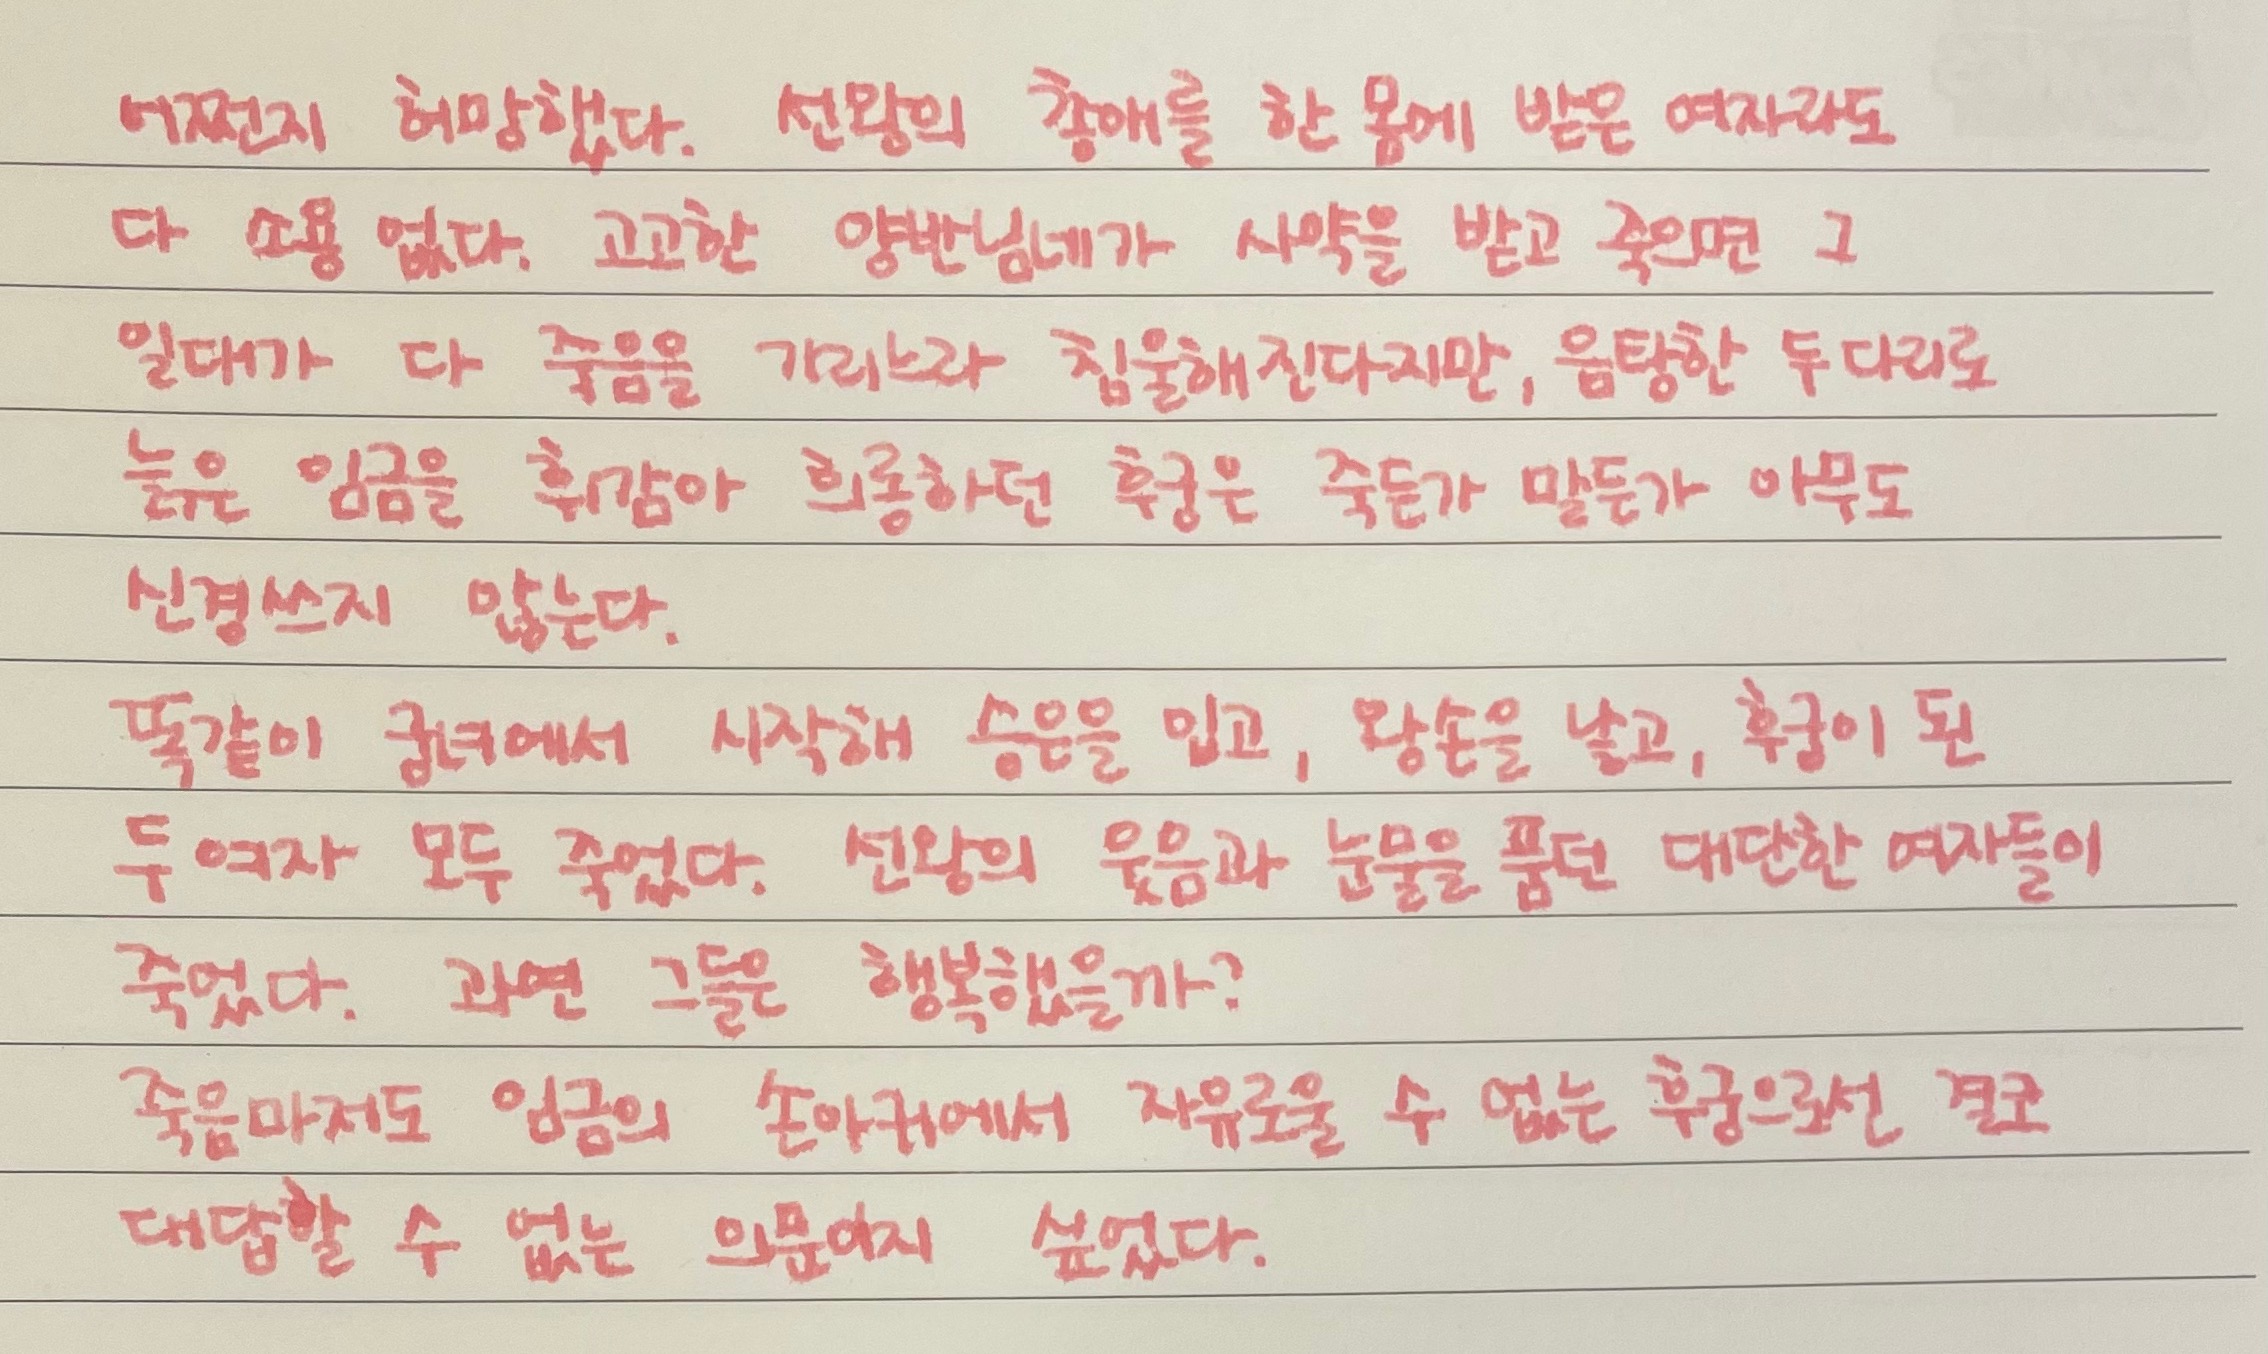 어쩐지 허망했다. 선왕의 총애를 한 몸에 받은 여자라도
다 소용 없다. 고고한 양반님네가 사약을 받고 죽으면 그
일대가 다 죽음을 기리느라 침울해진다지만, 음탕한 두 다리로
늙은 임금을 휘감아 희롱하던 후궁은 죽든가 말든가 아무도
신경쓰지 않는다.
똑같이 궁녀에서 시작해 승은을 입고, 왕손을 낳고, 후궁이 된
두 여자 모두 죽었다. 선왕의 웃음과 눈물을 품던 대단한 여자들이
죽었다. 과연 그들은 행복했을까?
죽음마저도 임금의 손아귀에서 자유로울 수 없는 후궁으로선 결코
대답할 수 없는 의문이지 싶었다.